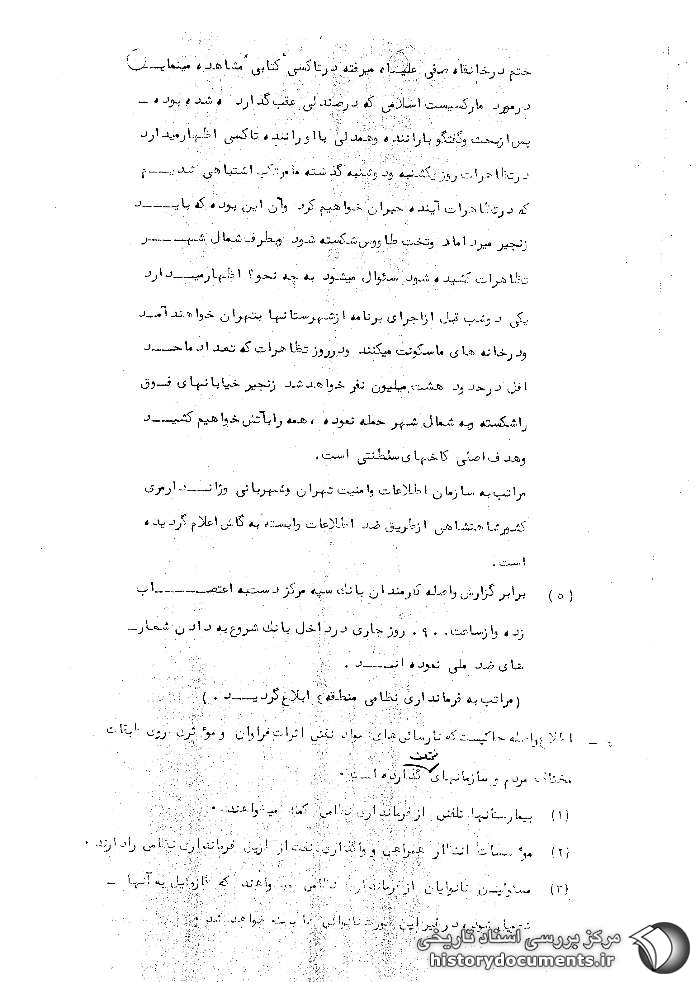 ختم درخانقاه صفی علیشاه میرفته درتاکسی "کتابی" مشاهده مینمایـد
درمورد مارکسیست اسلامی که درصندلی عقب گذارد ه شده بوده ـ
پس ازبحث وگفتگو باراننده وهمدلی بااو راننده تاکسی اظهارمیدارد
درتظاهرات روز یکشنبه ودوشنبه گذشته ما مرتکب اشتباهی شدیـــم
که درتظاهرات آینده جبران خواهیم کرد وآن این بوده که بایـــد
زنجیر میرد اماد وتخت طاووس شکسته شود وبطرف شمال شهـــر
تظاهرات کشیده شود سئوال میشود به چه نحو؟ اظهارمیــدارد
یکی دوشب قبل ازاجرای برنامه ازشهرستانها بتهران خواهند آمـد
ودرخانه های ماسکونت میکنند ودرروز تظاهرات که تعداد ماحــد
اقل درحدود هشت میلیون نفر خواهد شد زنجیر خیابانهای فـوق
راشکسته وبه شمال شهر حمله نموده ، همه رابآتش خواهیم کشیـــد
وهدف اصلی کاخهای سلطنتی است.
مراتب به سازمان اطلاعات وامنیت تهران وشهربانی وژانــدارمری
کشورشاهنشاهی ازطریق ضد اطلاعات وابسته به گاش اعلام گردیده
است .
(۵) برابر گزارش واصله کارمندان بانك سپه مرکز دست به اعتصــــاب
زده وازساعت ۰۹۰۰ روز جاری درداخل بانك شروع به دادن شعارـ
های ضد ملی نموده انـــد .
(مراتب به فرمانداری نظامی منطقه ابلاغ گردیـــد . )
اطلاع واصله حاکیست که نارسائی های مواد نفتی اثرات فراوان و مؤثری روی طبقات
مختلف مردم و سازمانهای گذارده است .
(۱) بیمارستانها تلفنی ازفرمانداری نظامی کمك میخواهند .
(۲) مؤسسات انتظار همراهی و واگذاری نفت از فرمانداری نظامی رادارند .
(۳) مسئولین نانوایان ازفرمانداری نظامی میخواهند که گازوئیل به آنها ـ
درغیراین صورت نانوائی خواهد شد .
مرکز بررسی اسناد تاریخی
historydocuments.ir